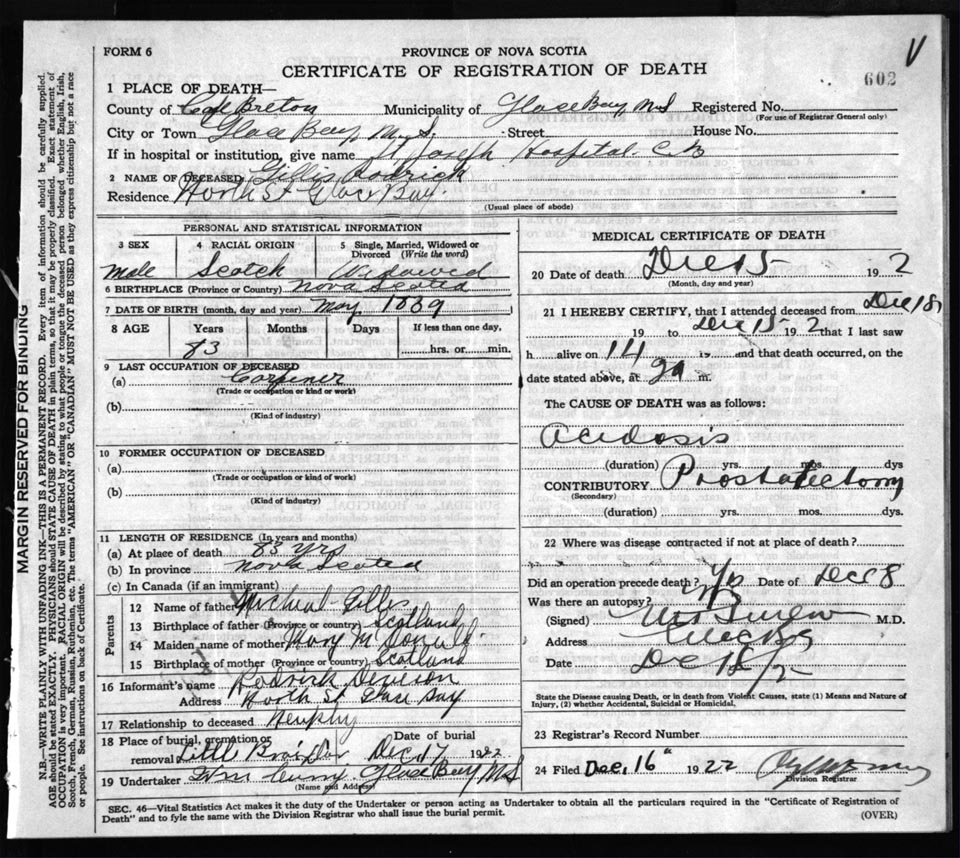 FORM 6
PROVINCE OF NOVA SCOTIA
CERTIFICATE OF REGISTRATION OF DEATH
602
1 PLACE OF DEATH—
County of Cape Breton Municipality of Glace Bay N S Registered No.
(For use of Registrar General only)
City or Town Glace Bay N. S. Street House No.
If in hospital or institution, give name St Joseph Hospital. C B
2 NAME OF DECEASED Gillis Rodrick
Residence North St Glace Bay
(Usual place of abode)
PERSONAL AND STATISTICAL INFORMATION
3 SEX 4 RACIAL ORIGIN 5 Single, Married, Widowed or Divorced (Write the word)
Male Scotch Widowed
6 BIRTHPLACE (Province or Country) Nova Scotia
7 DATE OF BIRTH (month, day and year) May 1839
8 AGE Years Months Days If less than one day,
83 hrs. or min.
9 LAST OCCUPATION OF DECEASED
(a)
(Trade or occupation or kind or work)
(b)
(Kind of industry)
10 FORMER OCCUPATION OF DECEASED
(a)
(Trade or occupation or kind of work)
(b)
(Kind of industry)
11 LENGTH OF RESIDENCE (In years and months)
(a) At place of death 83 yrs
(b) In province Nova Scotia
(c) In Canada (if an immigrant)
Parents
12 Name of father Michael Gillis
13 Birthplace of father (Province or country) Scotland
14 Maiden name of mother Mary McDonald
15 Birthplace of mother (Province or country) Scotland
16 Informant's name Rodrick
Address North St Glace Bay
17 Relationship to deceased Nephy
18 Place of burial, cremation or removal Date of burial
Little Bras d'or Dec 17 1922
19 Undertaker Wm Curry Glace Bay N S
(Name and Address)
MEDICAL CERTIFICATE OF DEATH
20 Date of death Dec 15 19 2
(Month, day and year)
21 I HEREBY CERTIFY, that I attended deceased from Dec
19 to Dec 15 19 2 that I last saw
h alive on 14 19 and that death occurred, on
date stated above, at 2 a m.
The CAUSE OF DEATH was as follows:
Acidosis
(duration) yrs. mos. dys
CONTRIBUTORY Prostatectomy
(Secondary)
(duration) yrs. mos. dys.
22 Where was disease contracted if not at place of death?
Did an operation precede death? Yes Date of Dec 8
Was there an autopsy? No
(Signed) M.D.
Address Glace Bay
Date Dec
State the Disease causing Death, or in death from Violent Causes, state (1) Means and Nature of
Injury, (2) whether Accidental, Suicidal or Homicidal.
23 Registrar's Record Number
24 Filed Dec, 16" 1922
Division Registrar
SEC. 46—Vital Statistics Act makes it the duty of the Undertaker or person acting as Undertaker to obtain all the particulars required in the "Certificate of Registration of
Death" and to fyle the same with the Division Registrar who shall issue the burial permit.
(OVER)
MARGIN RESERVED FOR BINDING
N.B.—WRITE PLAINLY WITH UNFADING INK—THIS IS A PERMANENT RECORD. Every item of information should be carefully supplied.
AGE should be stated EXACTLY. PHYSICIANS should STATE CAUSE OF DEATH in plain terms, so that it may be properly classified. Exact statement of
OCCUPATION is very important. RACIAL ORIGIN will be described by stating to what people or tongue the deceased person belonged whether English, Irish,
Scotch, French, German, Russian, Ruthenian, etc. The terms "AMERICAN" OR "CANADIAN" MUST NOT BE USED as they express citizenship but not a race
or people. See instructions on back of Certificate.